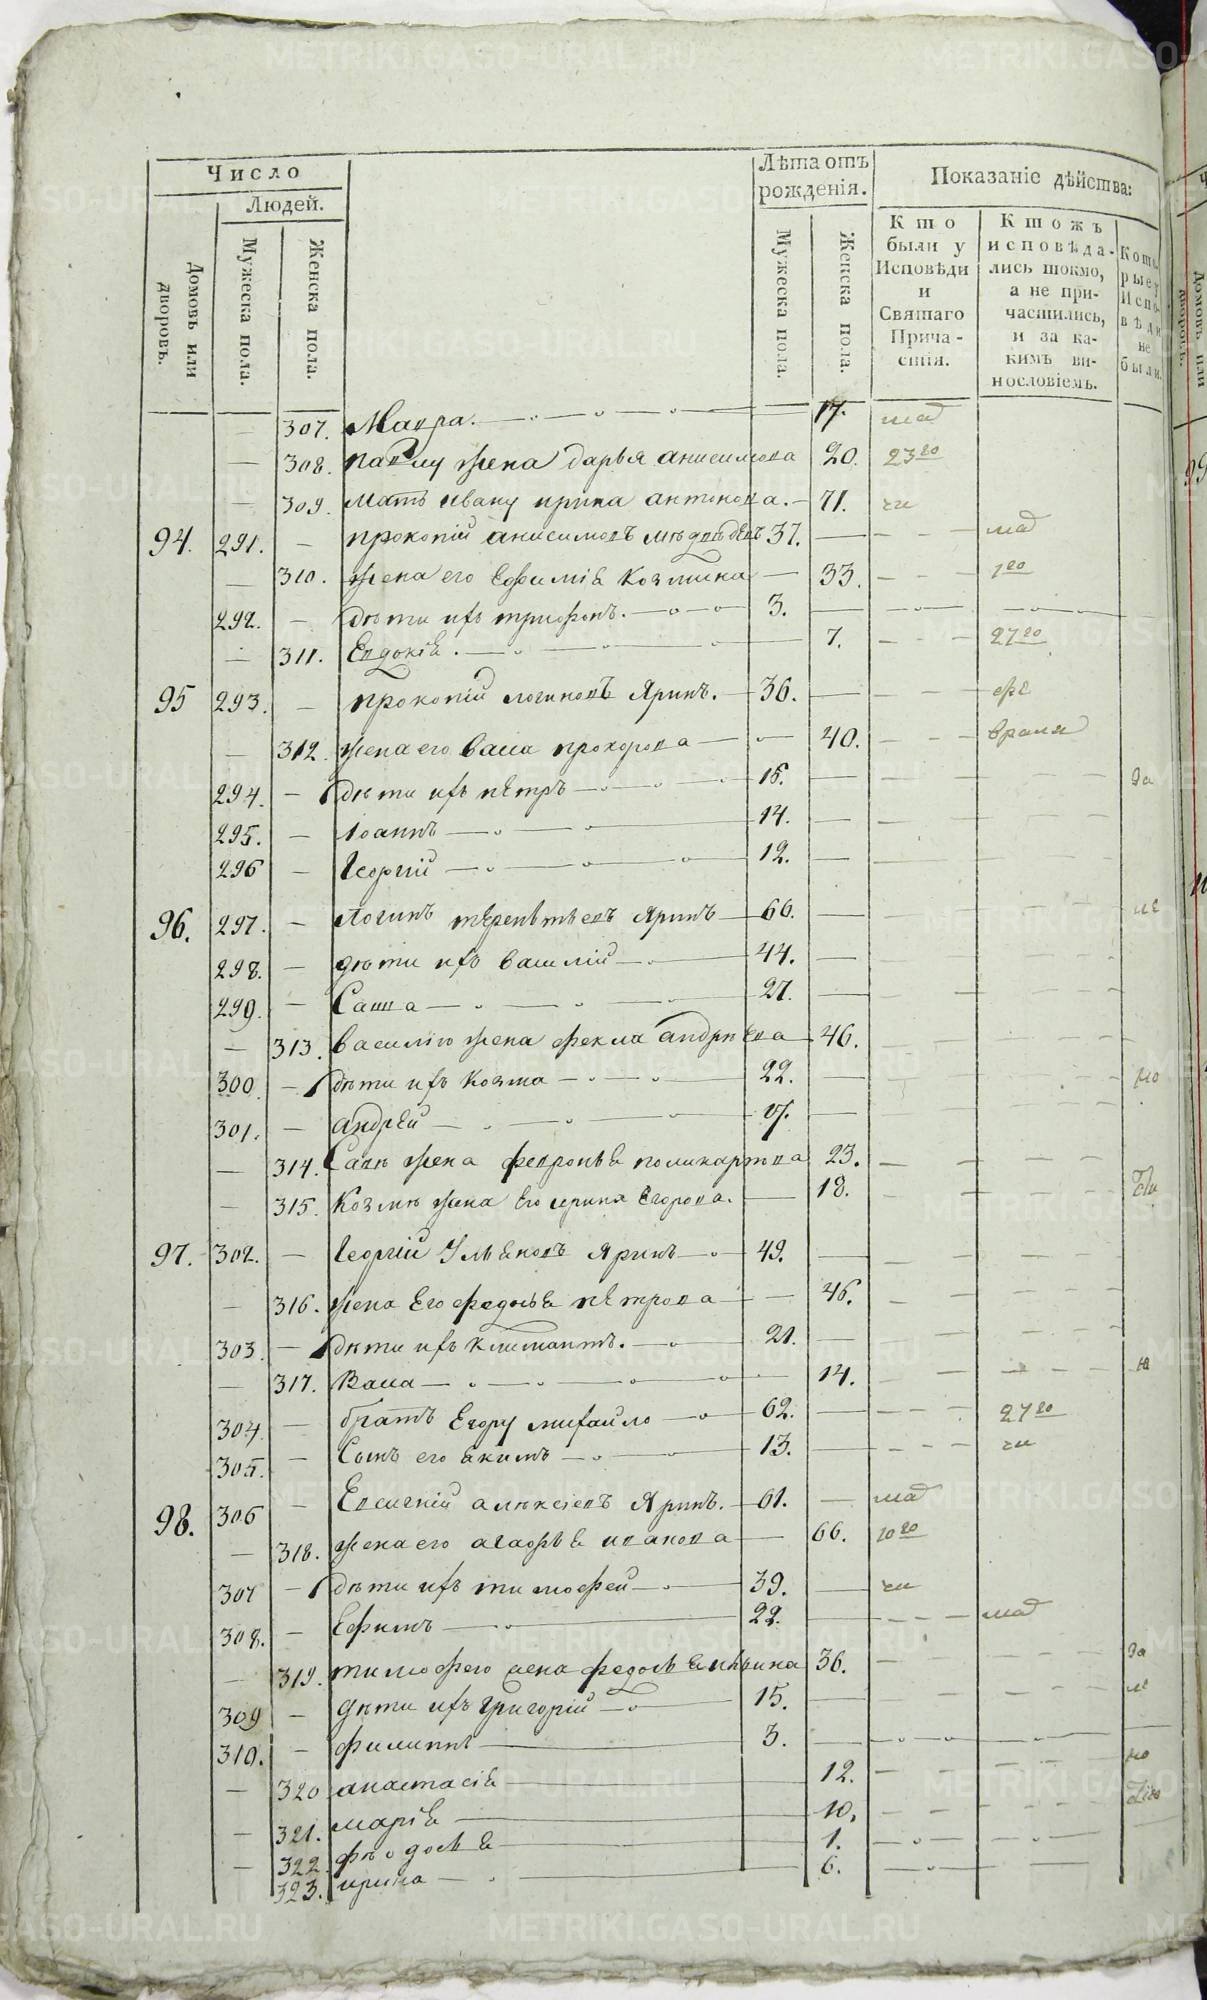 Число
Людей.
Домовъ или дворовъ.
Мужеска пола.
Женска пола.
Лѣта отъ рожденія.
Мужеска пола.
Женска пола.
Показаніе дѣйства:
Кто были у Исповѣди и Святаго Причастія.
Кто жъ исповѣдались токмо, а не причастились, и за какимъ винословіемъ.
Которые у Исповѣди не были.
— 307. Мавра. — 17. мад
— 308. павлу жена дарья анисимова 20. 23 го
— 309. мать ивану ирина антонова. — 71. чи
94. 291. — прокопій анисимовъ медведевъ 37. — мад
— 310. жена его Ефимія Козмина — 33. 7 го
292. — дети ихъ трифонъ. — 3. —
— 311. Евдокія. — 7. 27 го
95 293. — прокопій логиновъ Яринъ. — 36. —
— 312. жена его Васса прохорова — 40. время
294. — дети ихъ петръ — 15. — За
295. — Іоаннъ — 14. —
296 — Георгій — 12. —
96. 297. — Логинъ терентьевъ Яринъ — 66. —
298. — дети ихъ василій — 44. —
299. — Савва — 27. —
— 313. василію жена фекла андреева 46.
300 — дети ихъ Козма — 22. —
301. — андрей — 17. —
— 314. Саве жена февронья поликарпова 23.
— 315. Козме жена Его ирина Егорова. — 18.
97. 302. — Георгій Ульяновъ Яринъ — 49. —
— 316. жена Его федосья петрова — 46.
303. — дети ихъ климантъ. — 21. —
— 317. Васса — 14.
304. — братъ Егору михайло — 62. — 27 го
305. — Сынъ его яким — 13. — чи
98. 306 — Евсигній алексіевъ Яринъ. — 61. — мад
— 318. жена его агафья иванова — 66. 10 го
307 — дети ихъ тимофей — 39. — чи
308. — Ефимъ — 22. — мад
— 319. тимофею жена федосья ильина 36. За
309 — дети ихъ григорій — 15. —
310. — филиппъ — 3. —
— 320 анастасія — 12.
— 321. марія — 10.
— 322. феодосья — 1.
323. ирина — 6.
METRIKI.GASO-URAL.RU